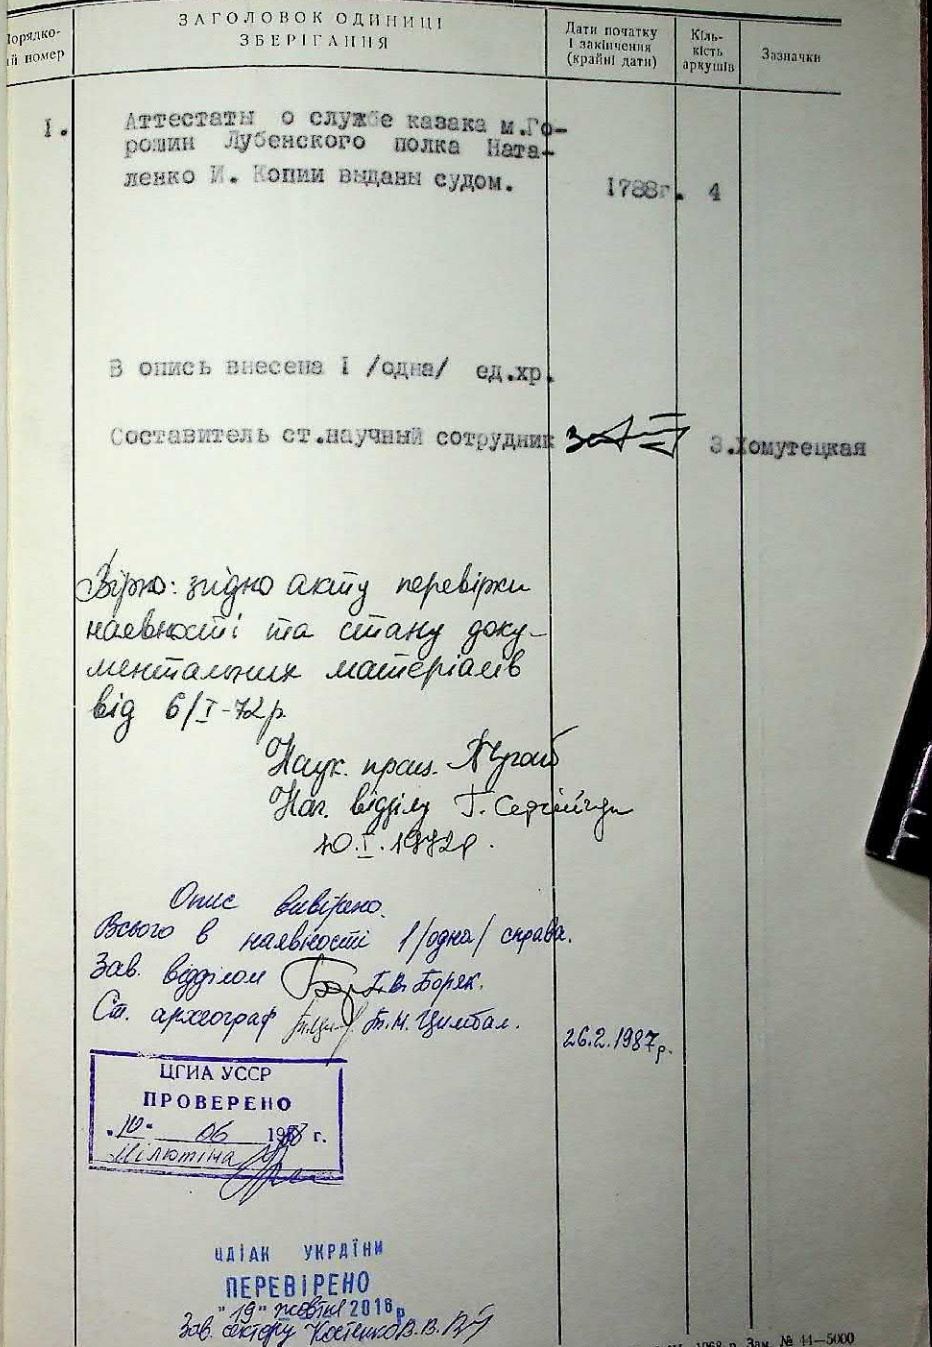 Порядко-
ий номер
ЗАГОЛОВОК ОДИНИЦІ
ЗБЕРІГАННЯ
Дати початку
і закінчення
(крайні дати)
Кіль-
кість
аркушів
Зазначки
I.
Аттестаты о службе казака м.Го-
рошин Лубенского полка Ната-
ленко И. Копии выданы судом.
1788г. 4
В опись внесена I /одна/ ед.хр.
Составитель ст.научный сотрудник
З.Хомутецкая
Вірно: згідно акту перевірки
наявності та стану доку-
ментальних матеріалів
від 6/I-72р.
Наук. прац.
Нач. відділу Г.
10.I.1972р.
Опис вивірено.
Всього в наявності 1/одна/ справа.
Зав. відділом Г.В. Боряк.
Ст. археограф Т.М. Цимбал.
26.2.1987р.
ЦГИА УССР
ПРОВЕРЕНО
"10" 06 г.
Мілютіна
ЦДІАК УКРАЇНИ
ПЕРЕВІРЕНО
"19" жовтня 2016р
Зав. сектору Костенко В.В.
1968 р. Зам. № 44—5000